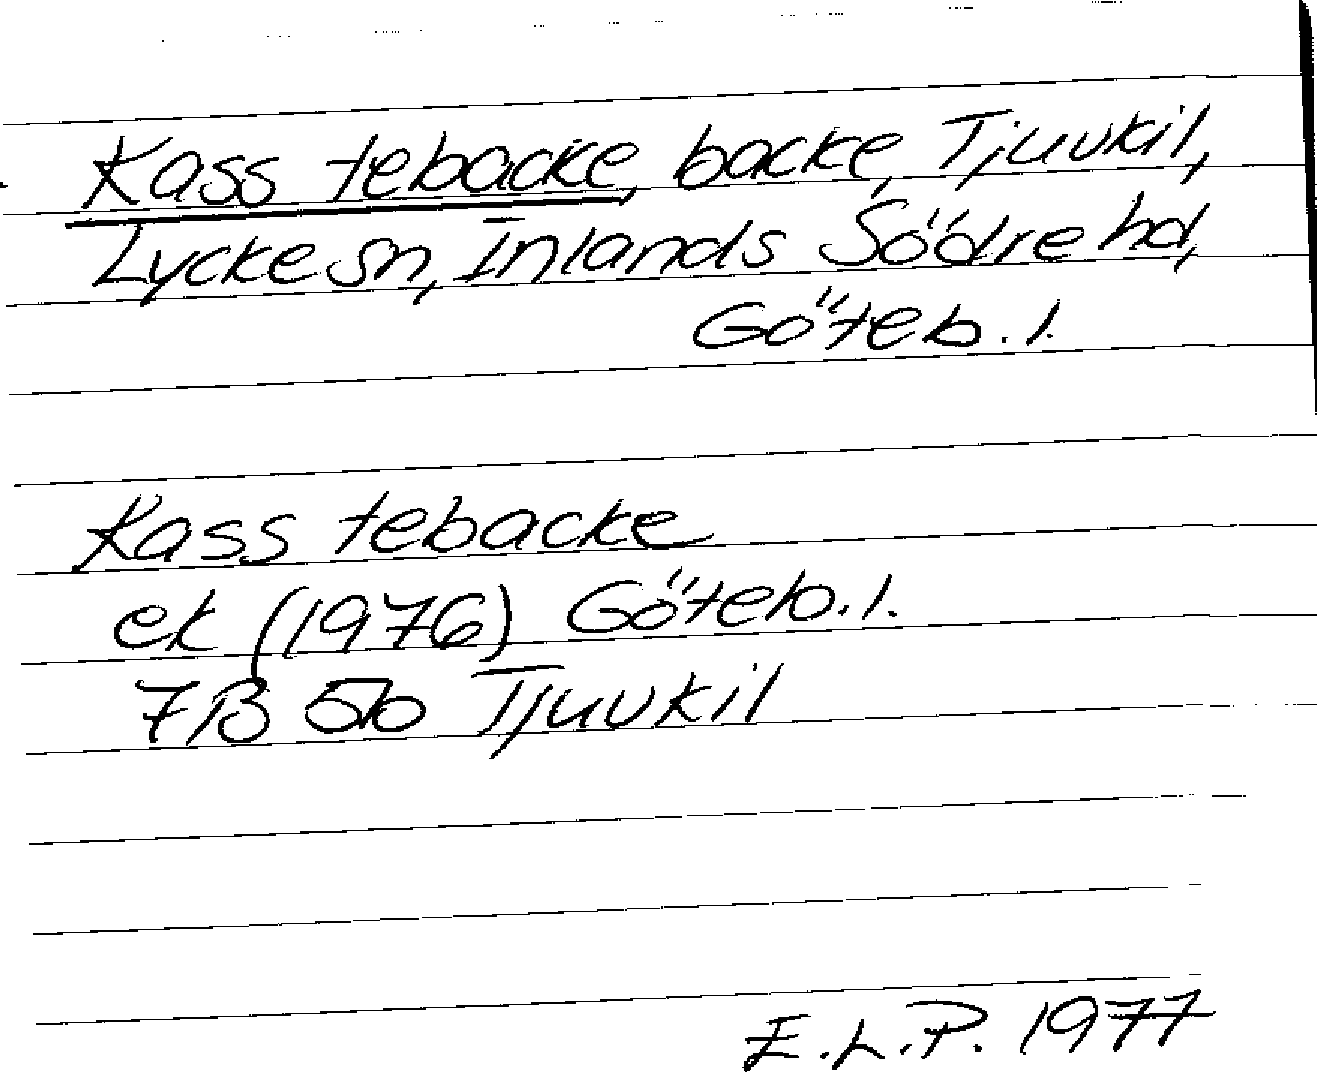 Kass tebacke, backe, Tjuvkil,
Lycke sn, Inlands Södre hd,
Göteb. l.
Kass tebacke
ek (1976) Göteb. l.
7B 5b Tjuvkil
E.L.P. 1977